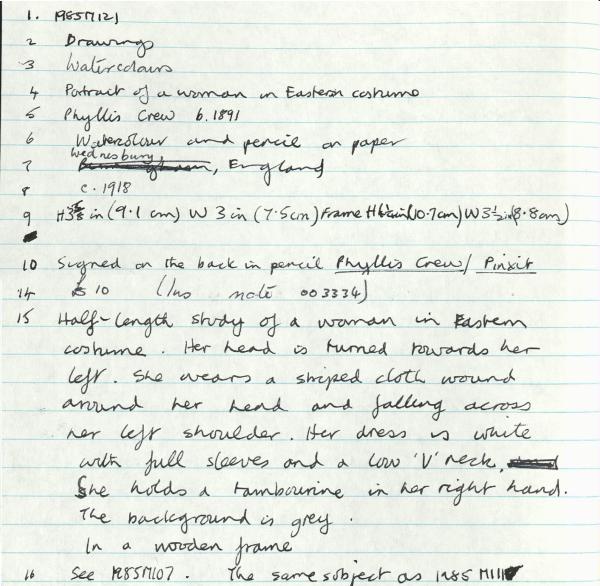 1. 1985M121
2 Drawings
3 Watercolours
4 Portrait of a woman in Eastern costume
5 Phyllis Crew b. 1891
6 Watercolour and pencil on paper
Wednesbury,
7 , England
8 c. 1918
9 H3 in (9.1 cm) W 3 in (7.5cm) Frame H in (10.7cm) W 3½in (8.8cm)
10 Signed on the back in pencil Phyllis Crew/ Pinxit
14 £10 (Ins note 003334)
15 Half-length study of a woman in Eastern
costume. Her head is turned towards her
left. She wears a striped cloth wound
around her head and falling across
her left shoulder. Her dress is white
with full sleeves and a low 'V' neck,
She holds a tambourine in her right hand.
The background is grey.
In a wooden frame
16 See 1985M107. The same subject as